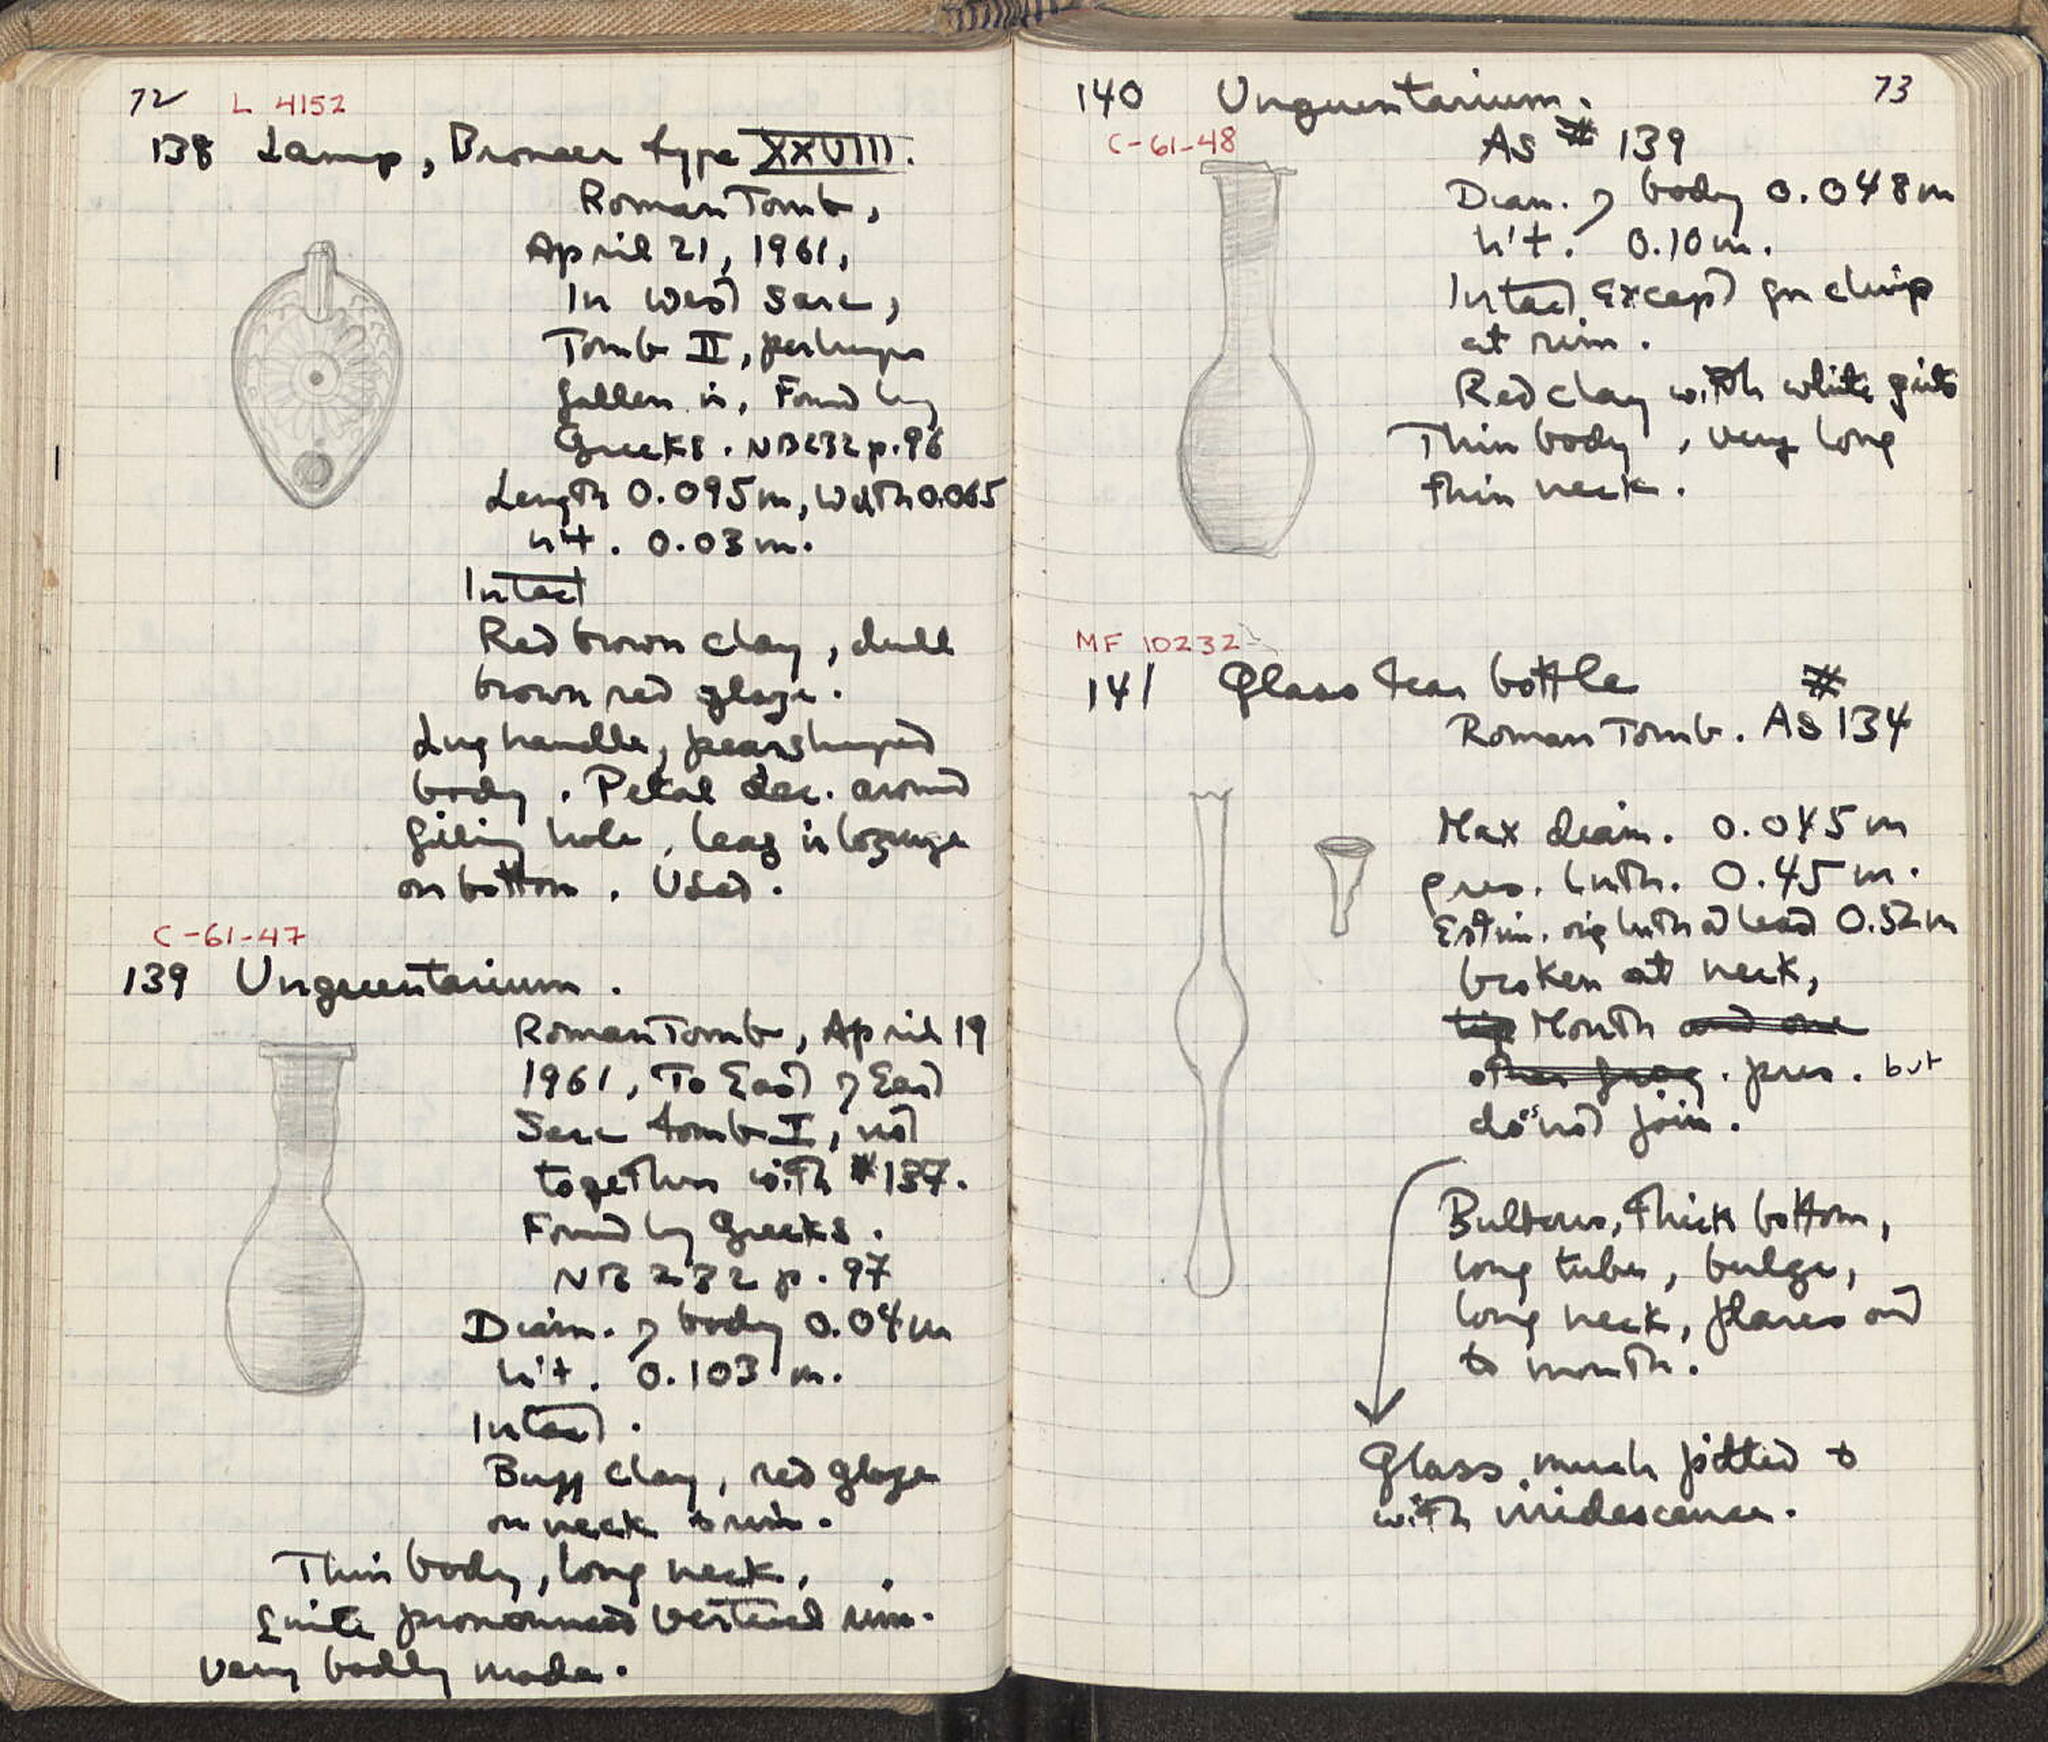 72
L 4152
138 Lamp, Broneer type XXVIII.
Roman Tomb,
April 21, 1961,
In West Sarc,
Tomb II, perhaps
fallen in, Found by
Greeks. NB232 p.96
Length 0.095m, Width 0.065
h't. 0.03m.
Intact
Red brown clay, dull
brown red glaze.
Lug handle, pearshaped
body. Petal dec. around
filling hole, leaf in lozenge
on bottom. Used.
C-61-47
139 Unguentarium.
Roman Tomb, April 19
1961, To East of East
Sarc tomb I, not
together with #137.
Found by Greeks.
NB 232 p. 97
Diam. of body 0.04m
h't. 0.103 m.
Intact.
Buff clay, red glaze
on neck & rim.
Thin body, long neck,
Quite pronounced vertical rim.
Very badly made.
73
140 Unguentarium.
C-61-48
As # 139
Diam. of body 0.048m
h't. 0.10m.
Intact except for chip
at rim.
Red clay with white grits
Thin body, very long
thin neck.
MF 10232
141 Glass tear bottle
Roman Tomb. As #134
Max diam. 0.045m
pres. lnth. 0.45m.
Estim. orig lnth at least 0.52m
broken at neck,
lip Mouth and one
other frag. pres. but
does not join.
Bulbous, thick bottom,
long tube, bulge,
long neck, flares out
to mouth.
Glass much pitted &
with iridescence.